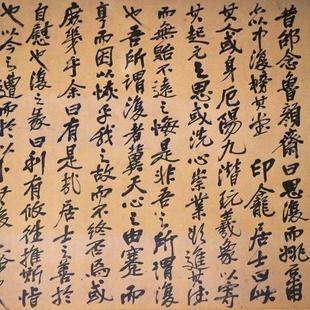 昔邵念魯顏齋曰思復而姚京甫
亦以中復榜其堂 印龕居士曰此
其人或身厄陽九潛玩羲象以寄
其起元之思或洗心崇業以進其德
而無貽不遠之悔是非吾之所謂復
也吾所謂復者冀天心之由蹇而
亨而因以恢乎我之故而不終否焉或
庶幾乎余曰有是哉居士之善於
自慰也復之彖曰利有攸往推斯恉
也以今之遭而於